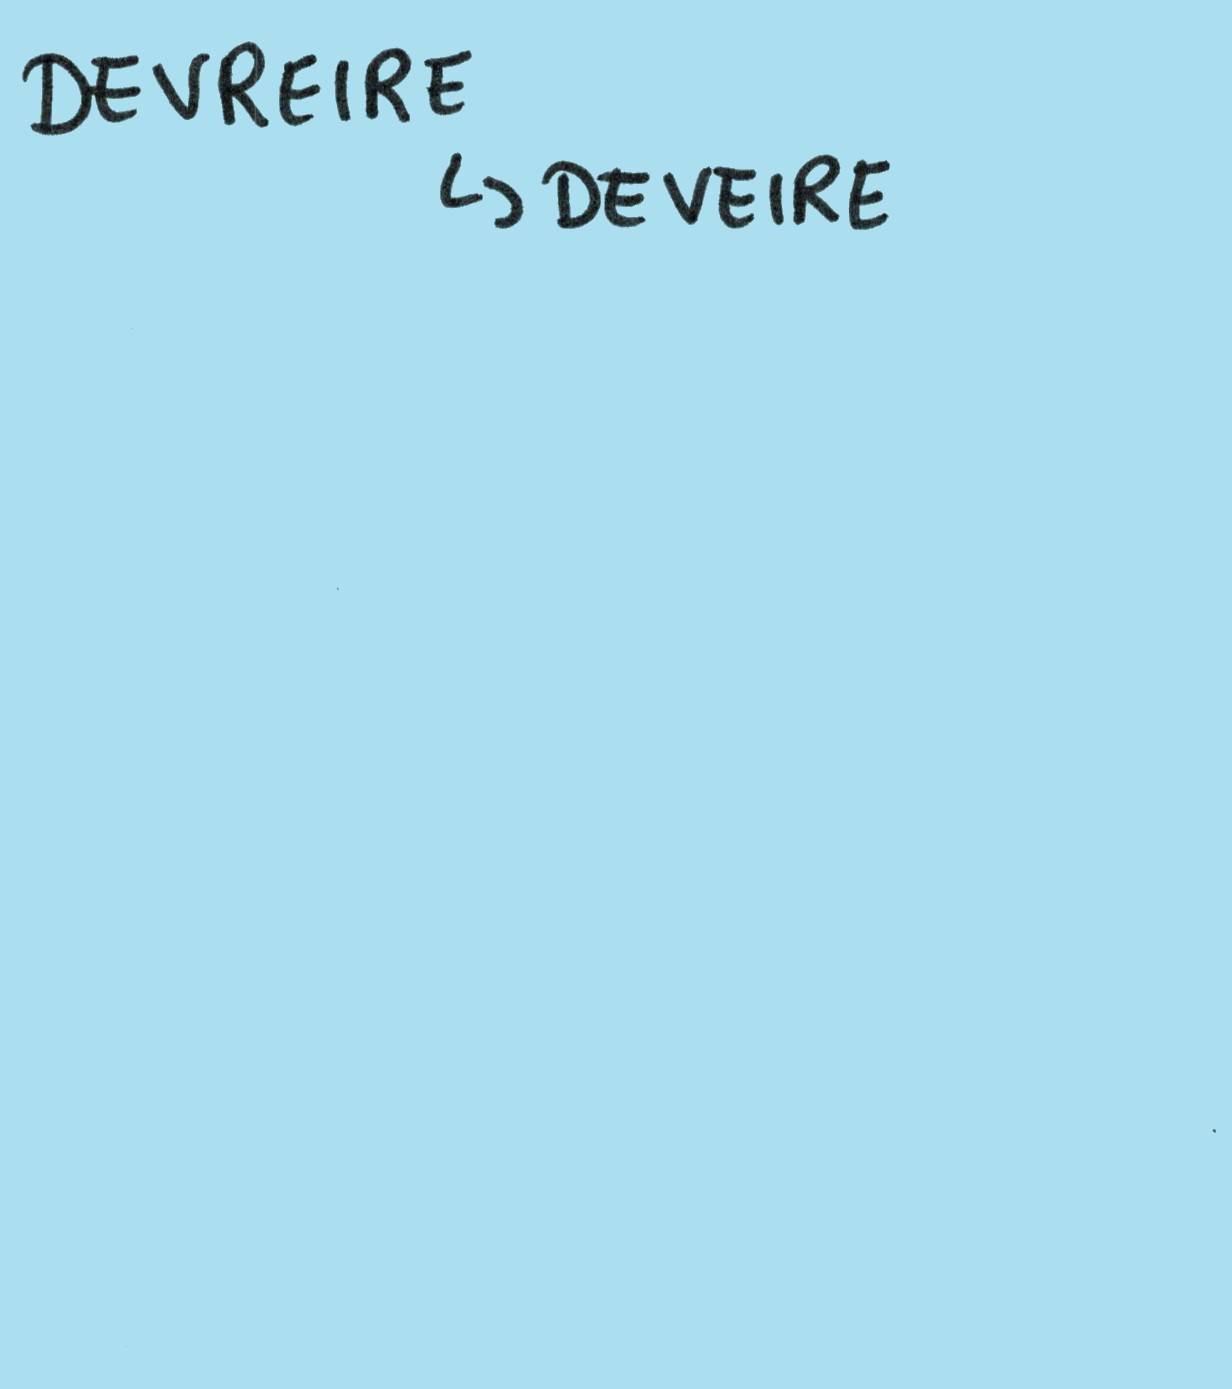 DEVREIRE
↳ DEVEIRE